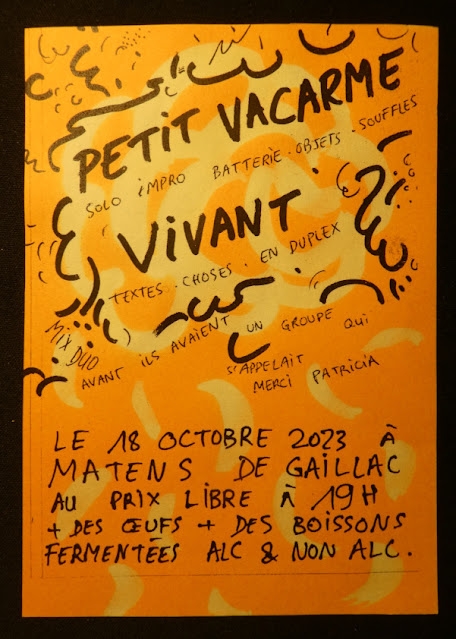 PETIT VACARME
SOLO IMPRO BATTERIE . OBJETS . SOUFFLES
VIVANT
TEXTES . CHOSES . EN DUPLEX
MIX DUO
AVANT ILS AVAIENT UN GROUPE QUI
S'APPELAIT
MERCI PATRICIA
LE 18 OCTOBRE 2023 À
MATENS DE GAILLAC
AU PRIX LIBRE À 19H
+ DES ŒUFS + DES BOISSONS
FERMENTÉES ALC & NON ALC.